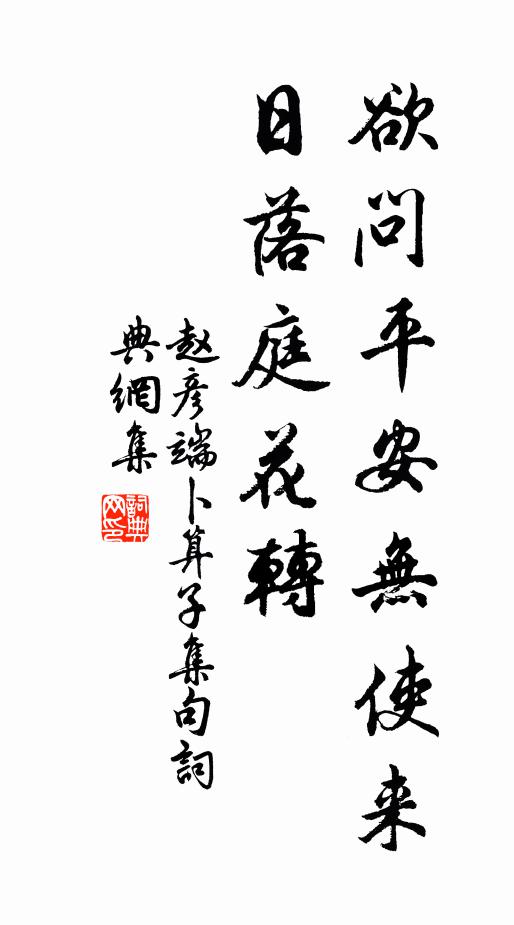 欲問平安無使来
日落庭花轉
赵彦端卜算子集句詞
典網集
詞典
网印